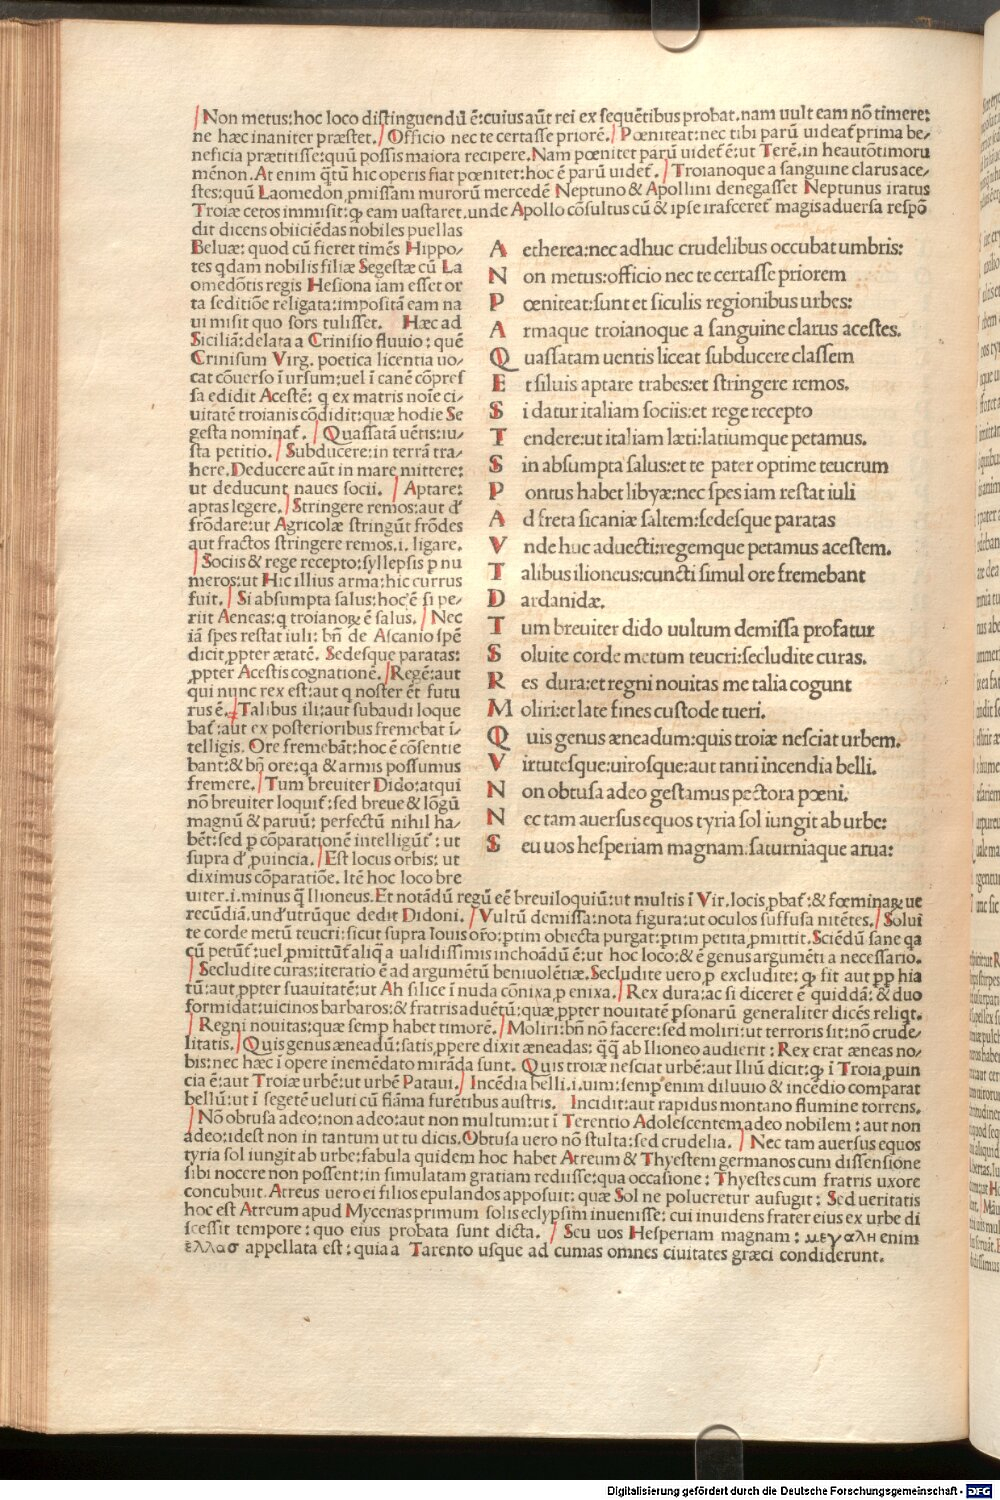 Non metus:hoc loco distinguendū ē:cuius aūt rei ex sequētibus probat.nam uult eam nō timere:
ne hæc inaniter præstet. Officio nec te certasse priorē. Pœniteat:nec tibi parū uideat᷑ prima be/
neficia prætitisse:quū possis maiora recipere.Nam pœnitet parū uidet᷑ ē:ut Terē.in heautōtimoru
mēnon.At enim q̄tū hic operis fiat pœnitet:hoc ē parū uidet᷑. Troianoque a sanguine clarus ace/
stes:quū Laomedon ꝓmissam murorū mercedē Neptuno & Apollini denegasset Neptunus iratus
Troiæ cetos immisit:q̨ eam uastaret.unde Apollo cōsultus cū & ipse irasceret᷑ magis aduersa respō
dit dicens obiiciēdas nobiles puellas
Beluæ: quod cū fieret timēs Hippo/
tes qdam nobilis filiæ Segestæ cū La
omedōtis regis Hesiona iam esset or
ta seditiōe religata:impositā eam na
ui misit quo sors tulisset. Hæc ad
Siciliā:delata a Crinisio fluuio: quē
Crinisum Virg. poetica licentia uo/
cat cōuerso ī ursum:uel ī canē cōpres
sa edidit Acestē: q ex matris noīe ci/
uitatē troianis cōdidit:quæ hodie Se
gesta nominat᷑. Quassatā uētis:iu/
sta petitio. Subducere:in terrā tra/
here.Deducere aūt in mare mittere:
ut deducunt naues socii. Aptare:
aptas legere. Stringere remos:aut d᷑
frōdare:ut Agricolæ stringūt frōdes
aut fractos stringere remos.i. ligare.
Sociis & rege recepto:syllepsis p nu
meros:ut Hic illius arma:hic currus
fuit. Si absumpta salus:hoc ē si pe/
riit Aeneas:q troianoꝝ ē salus. Nec
iā spes restat iuli: bn̄ de Ascanio spē
dicit ꝓpter ætatē. Sedesque paratas:
ꝓpter Acestis cognationē. Regē:aut
qui nunc rex est:aut q noster ēt futu
rus ē. Talibus ili:aut subaudi loque
bat᷑:aut ex posterioribus fremebat ī/
telligis. Ore fremebāt:hoc ē cōsentie
bant:& bn̄ ore:qa & armis possumus
fremere. Tum breuiter Dido:atqui
nō breuiter loquit᷑:sed breue & lōgū
magnū & paruū: perfectū nihil ha/
bēt:sed p cōparationē intelligūt᷑: ut
supra d᷑ ꝓuincia. Est locus orbis: ut
diximus cōparatiōe. Itē hoc loco bre
A etherea:nec adhuc crudelibus occubat umbris:
N on metus:officio nec te certasse priorem
P œniteat:sunt et siculis regionibus urbes:
A rmaque troianoque a sanguine clarus acestes.
Q uassatam uentis liceat subducere classem
E t siluis aptare trabes:et stringere remos.
S i datur italiam sociis:et rege recepto
T endere:ut italiam læti:latiumque petamus.
S in absumpta salus:et te pater optime teucrum
P ontus habet libyæ:nec spes iam restat iuli
A d freta sicaniæ saltem:sedesque paratas
V nde huc aduecti:regemque petamus acestem.
T alibus ilioneus:cuncti simul ore fremebant
D ardanidæ.
T um breuiter dido uultum demissa profatur
S oluite corde metum teucri:secludite curas.
R es dura:et regni nouitas me talia cogunt
M oliri:et late fines custode tueri.
Q uis genus æneadum:quis troiæ nesciat urbem.
V irtutesque:uirosque:aut tanti incendia belli.
N on obtusa adeo gestamus pectora pœni.
N ec tam auersus equos tyria sol iungit ab urbe:
S eu uos hesperiam magnam:saturniaque arua:
uiter.i.minus q̄ Ilioneus.Et notādū regū eē breuiloquiū:ut multis ī Vir.locis ꝓbat᷑:& fœminaꝝ ue
recūdiā.und᷑ utrūque dedit Didoni. Vultū demissa:nota figura:ut oculos suffusa nitētes. Solui
te corde metū teucri:sicut supra Iouis oro:ptim obiecta purgat:ptim petita ꝓmittit.Sciēdū sane qa
cū petūt᷑:uel ꝓmittūt᷑ aliq̄ a ualidissimis inchoādū ē:ut hoc loco:& ē genus argumēti a necessario.
Secludite curas:iteratio ē ad argumētū beniuolētiæ.Secludite uero ꝓ excludite: q̨ fit aut ꝓꝑ hia
tū:aut ꝓpter suauitatē:ut Ah silice ī nuda cōnixa ꝓ enixa. Rex dura:ac si diceret ē quiddā: & duo
formidat:uicinos barbaros:& fratris aduētū:quæ ꝓpter nouitatē ꝑsonarū generaliter dicēs reliqt.
Regni nouitas:quæ semp habet timorē. Moliri:bn̄ nō facere:sed moliri:ut terroris sit:nō crude/
litatis. Quis genus æneadū:satis ꝓpere dixit æneadas: q̄q̄ ab Ilioneo audierit : Rex erat æneas no/
bis:nec hæc ī opere inemēdato mirāda sunt. Quis troiæ nesciat urbē:aut Iliū dicit:q̨ ī Troia ꝓuin
cia ē:aut Troiæ urbē:ut urbē Pataui. Incēdia belli.i.uim:semp enim diluuio & incēdio comparat
bellū:ut ī segetē ueluti cū flāma furētibus austris. Incidit:aut rapidus montano flumine torrens.
Nō obtusa adeo:non adeo:aut non multum:ut ī Terentio Adolescentem adeo nobilem : aut non
adeo:idest non in tantum ut tu dicis.Obtusa uero nō stulta:sed crudelia. Nec tam auersus equos
tyria sol iungit ab urbe:fabula quidem hoc habet Atreum & Thyestem germanos cum dissensiōne
sibi nocere non possent:in simulatam gratiam rediisse:qua occasione : Thyestes cum fratris uxore
concubuit. Atreus uero ei filios epulandos apposuit: quæ Sol ne pollueretur aufugit : Sed ueritatis
hoc est Atreum apud Mycenas primum solis eclypsim inuenisse: cui inuidens frater eius ex urbe di
scessit tempore : quo eius probata sunt dicta. Seu uos Hesperiam magnam : μεγαλη enim
ελλασ appellata est : quia a Tarento usque ad cumas omnes ciuitates græci condiderunt.
Digitalisierung gefördert durch die Deutsche Forschungsgemeinschaft - DFG